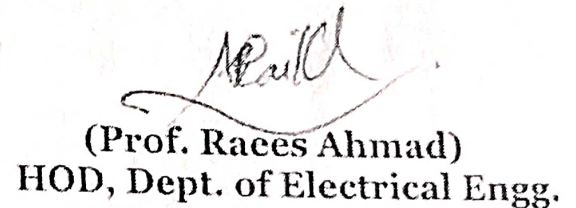 (Prof. Raees Ahmad)
HOD, Dept. of Electrical Engg.